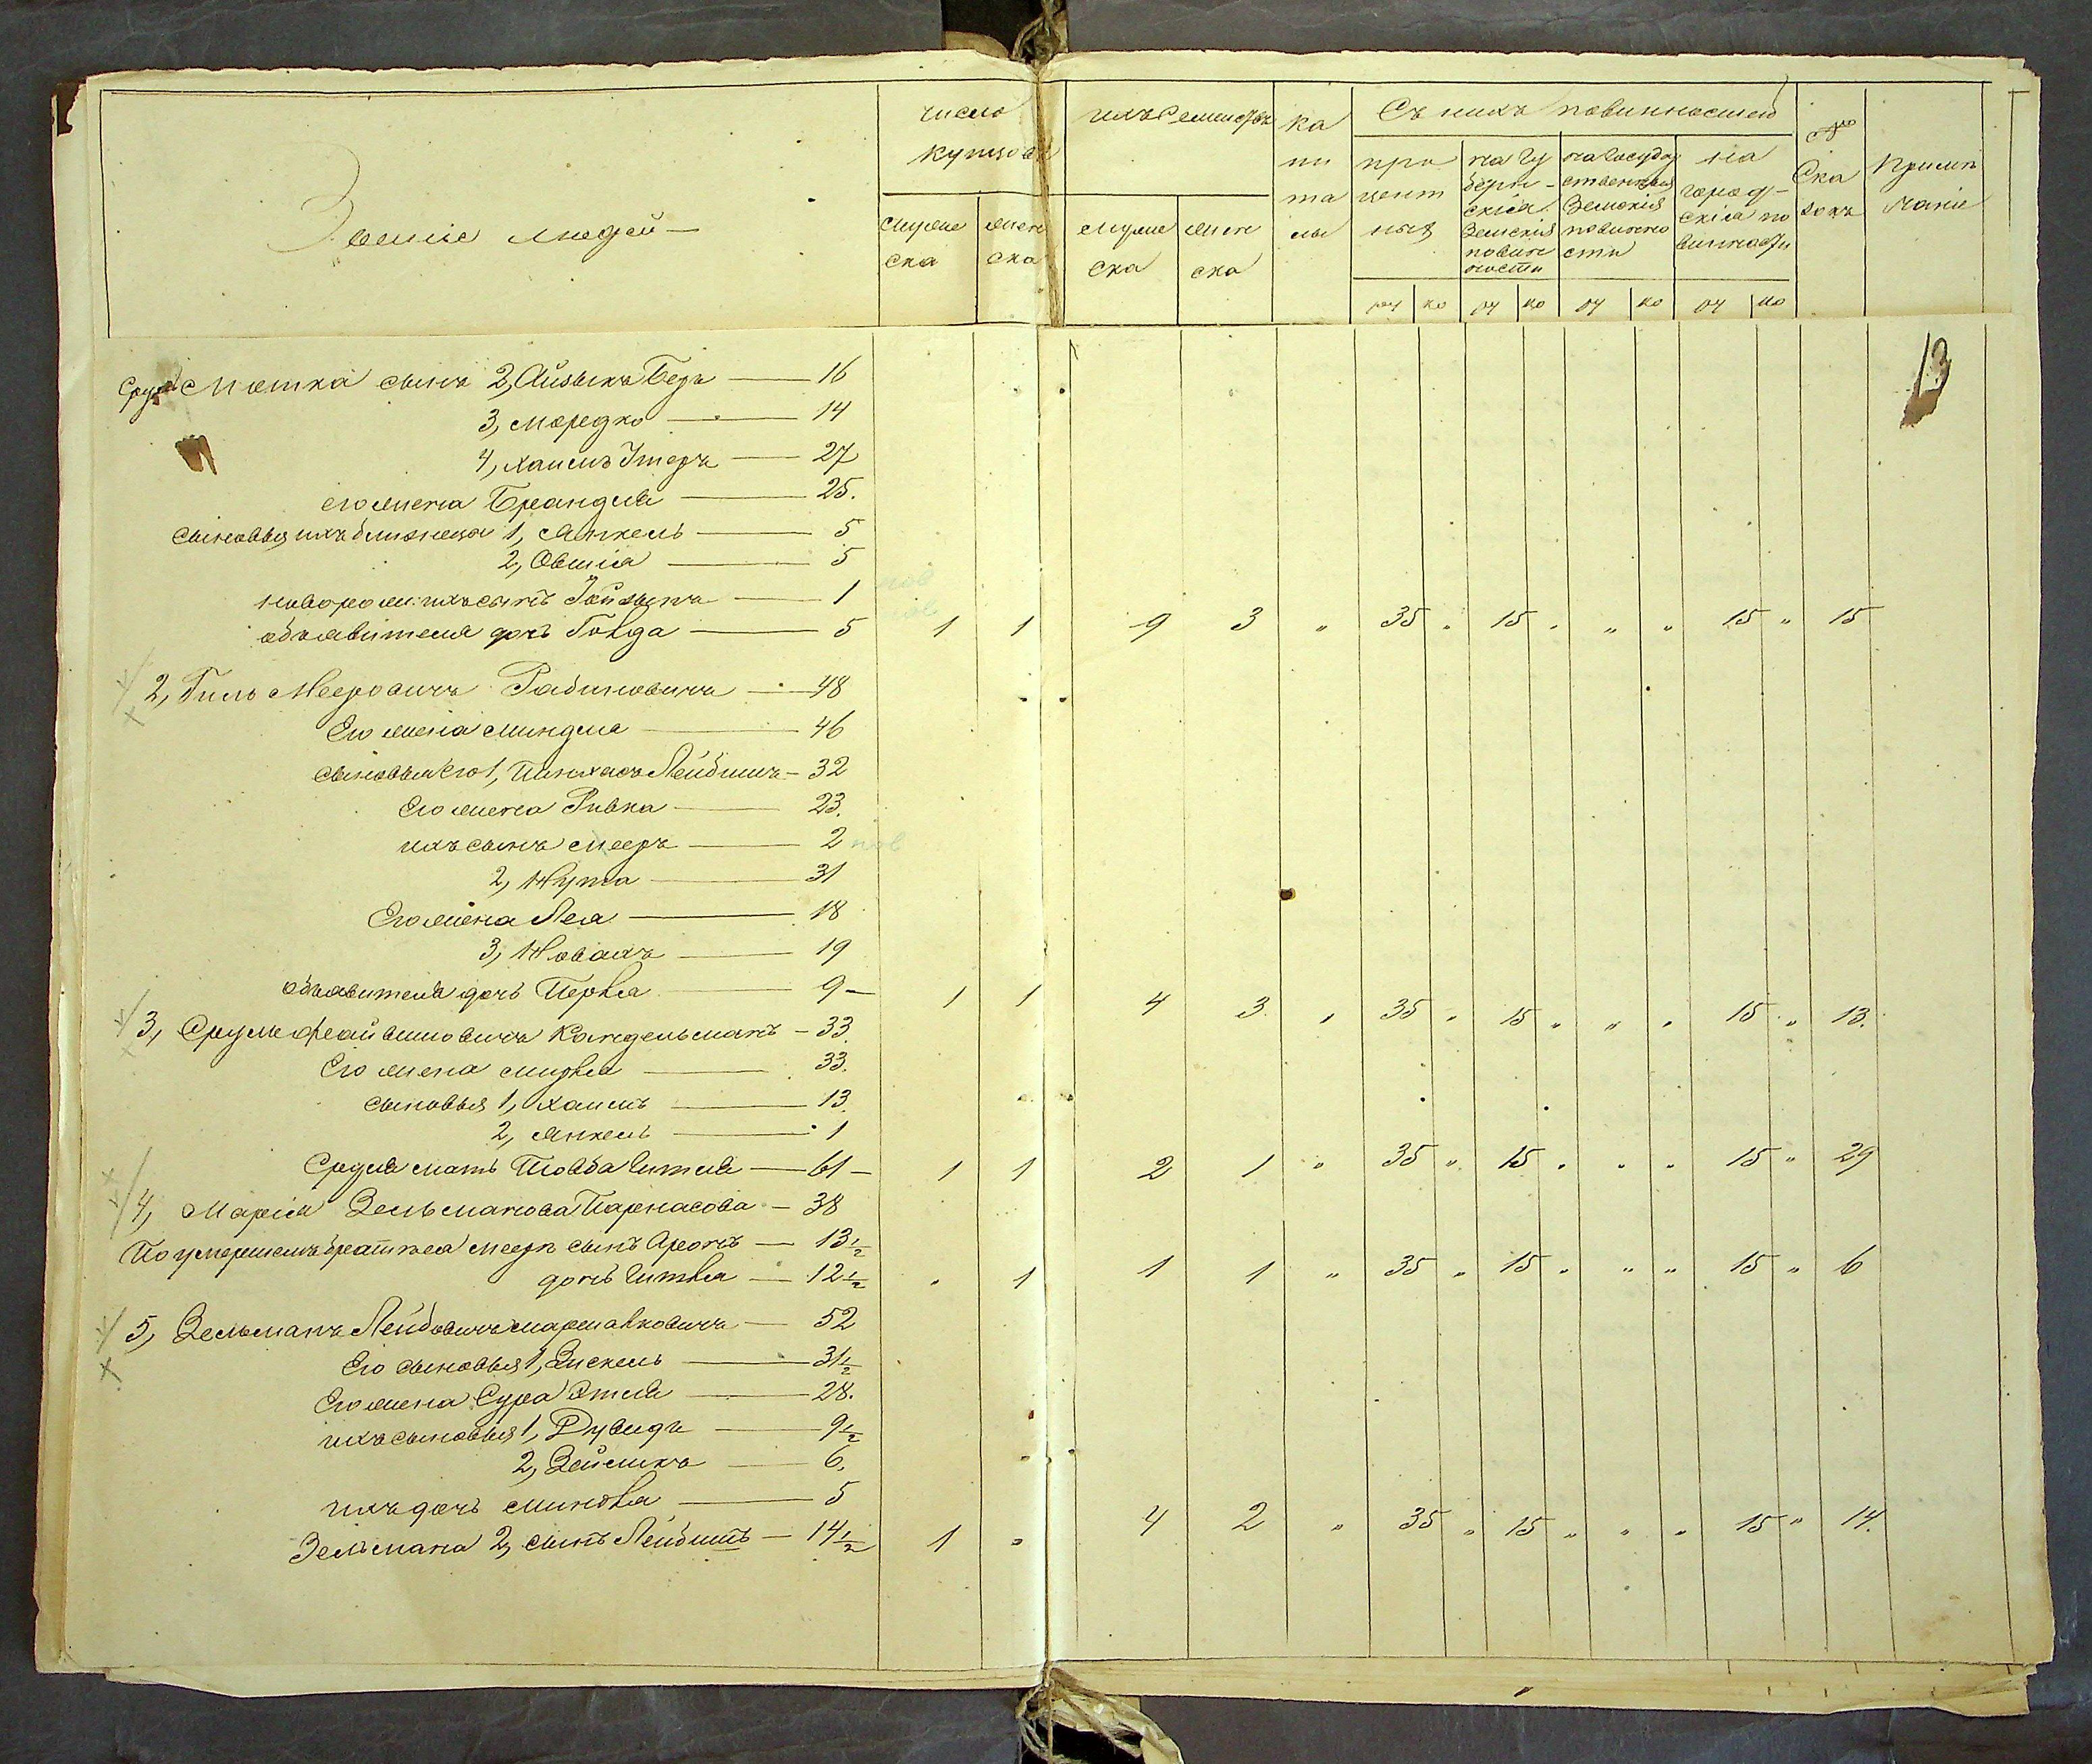 Званіе людей
число купцовъ
ихъ Семействъ
капиталы
Съ нихъ повинностей
№ Сказокъ
Примѣчаніе
мужеска
женска
мужеска
женска
процентныхъ
на губернскія Земскія повинности
на Государственныя Земскія повинности
на городскія повинности
ру ко ру ко ру ко ру ко
13
Сруля Мошка сынъ 2, Айзикъ Беръ — 16
3, Мордко — 14
4, Хаимъ Итеръ — 27
его жена Брандля — 25.
сыновья ихъ близнеца 1, Янкель — 5
2, Овшія — 5
новорож: ихъ сынъ — 1
объявителя дочь Голда — 5 1 1 9 3 „ 35 „ 15 „ „ „ 15 „ 15
2, Гиль Мееровичъ Рабиновичъ — 48
Его жена Миндля — 46
сыновья его 1, Пинхасъ Лейбишъ — 32
Его жена Ривка — 23.
ихъ сынъ Мееръ — 2 нов
2, Нута — 31
Его жена Лея — 18
3, Новахъ — 19
объявителя дочь Перля — 9 — 1 1 4 3 „ 35 „ 15 „ „ „ 15 „ 13.
3, Сруль Файвишовичъ Кондельманъ — 33.
Его жена Мирля — 33.
сыновья 1, Хаимъ — 13.
2, Янкель — 1
Сруля мать Шовба Гитля — 61 — 1 1 2 1 „ 35 „ 15 „ „ „ 15 „ 29
4, Марія Зельманова Парнасова — 38
По умершемъ братѣ ея Меерѣ сынъ Аронъ — 13 1/2
дочь Гитля — 12 1/2 „ 1 1 1 „ 35 „ 15 „ „ „ 15 „ 6
5, Зельманъ Лейбовичъ Маршалковичъ — 52
Его сыновья 1, Зискель — 31 1/2
Его жена Сура Этля — 28.
ихъ сыновья 1, Дувидъ — 9 1/2
2, Зейликъ — 6.
ихъ дочь Миндля — 5
Зельмана 2, сынъ Лейбишъ — 14 1/2 1 „ 4 2 „ 35 „ 15 „ „ „ 15 „ 14.